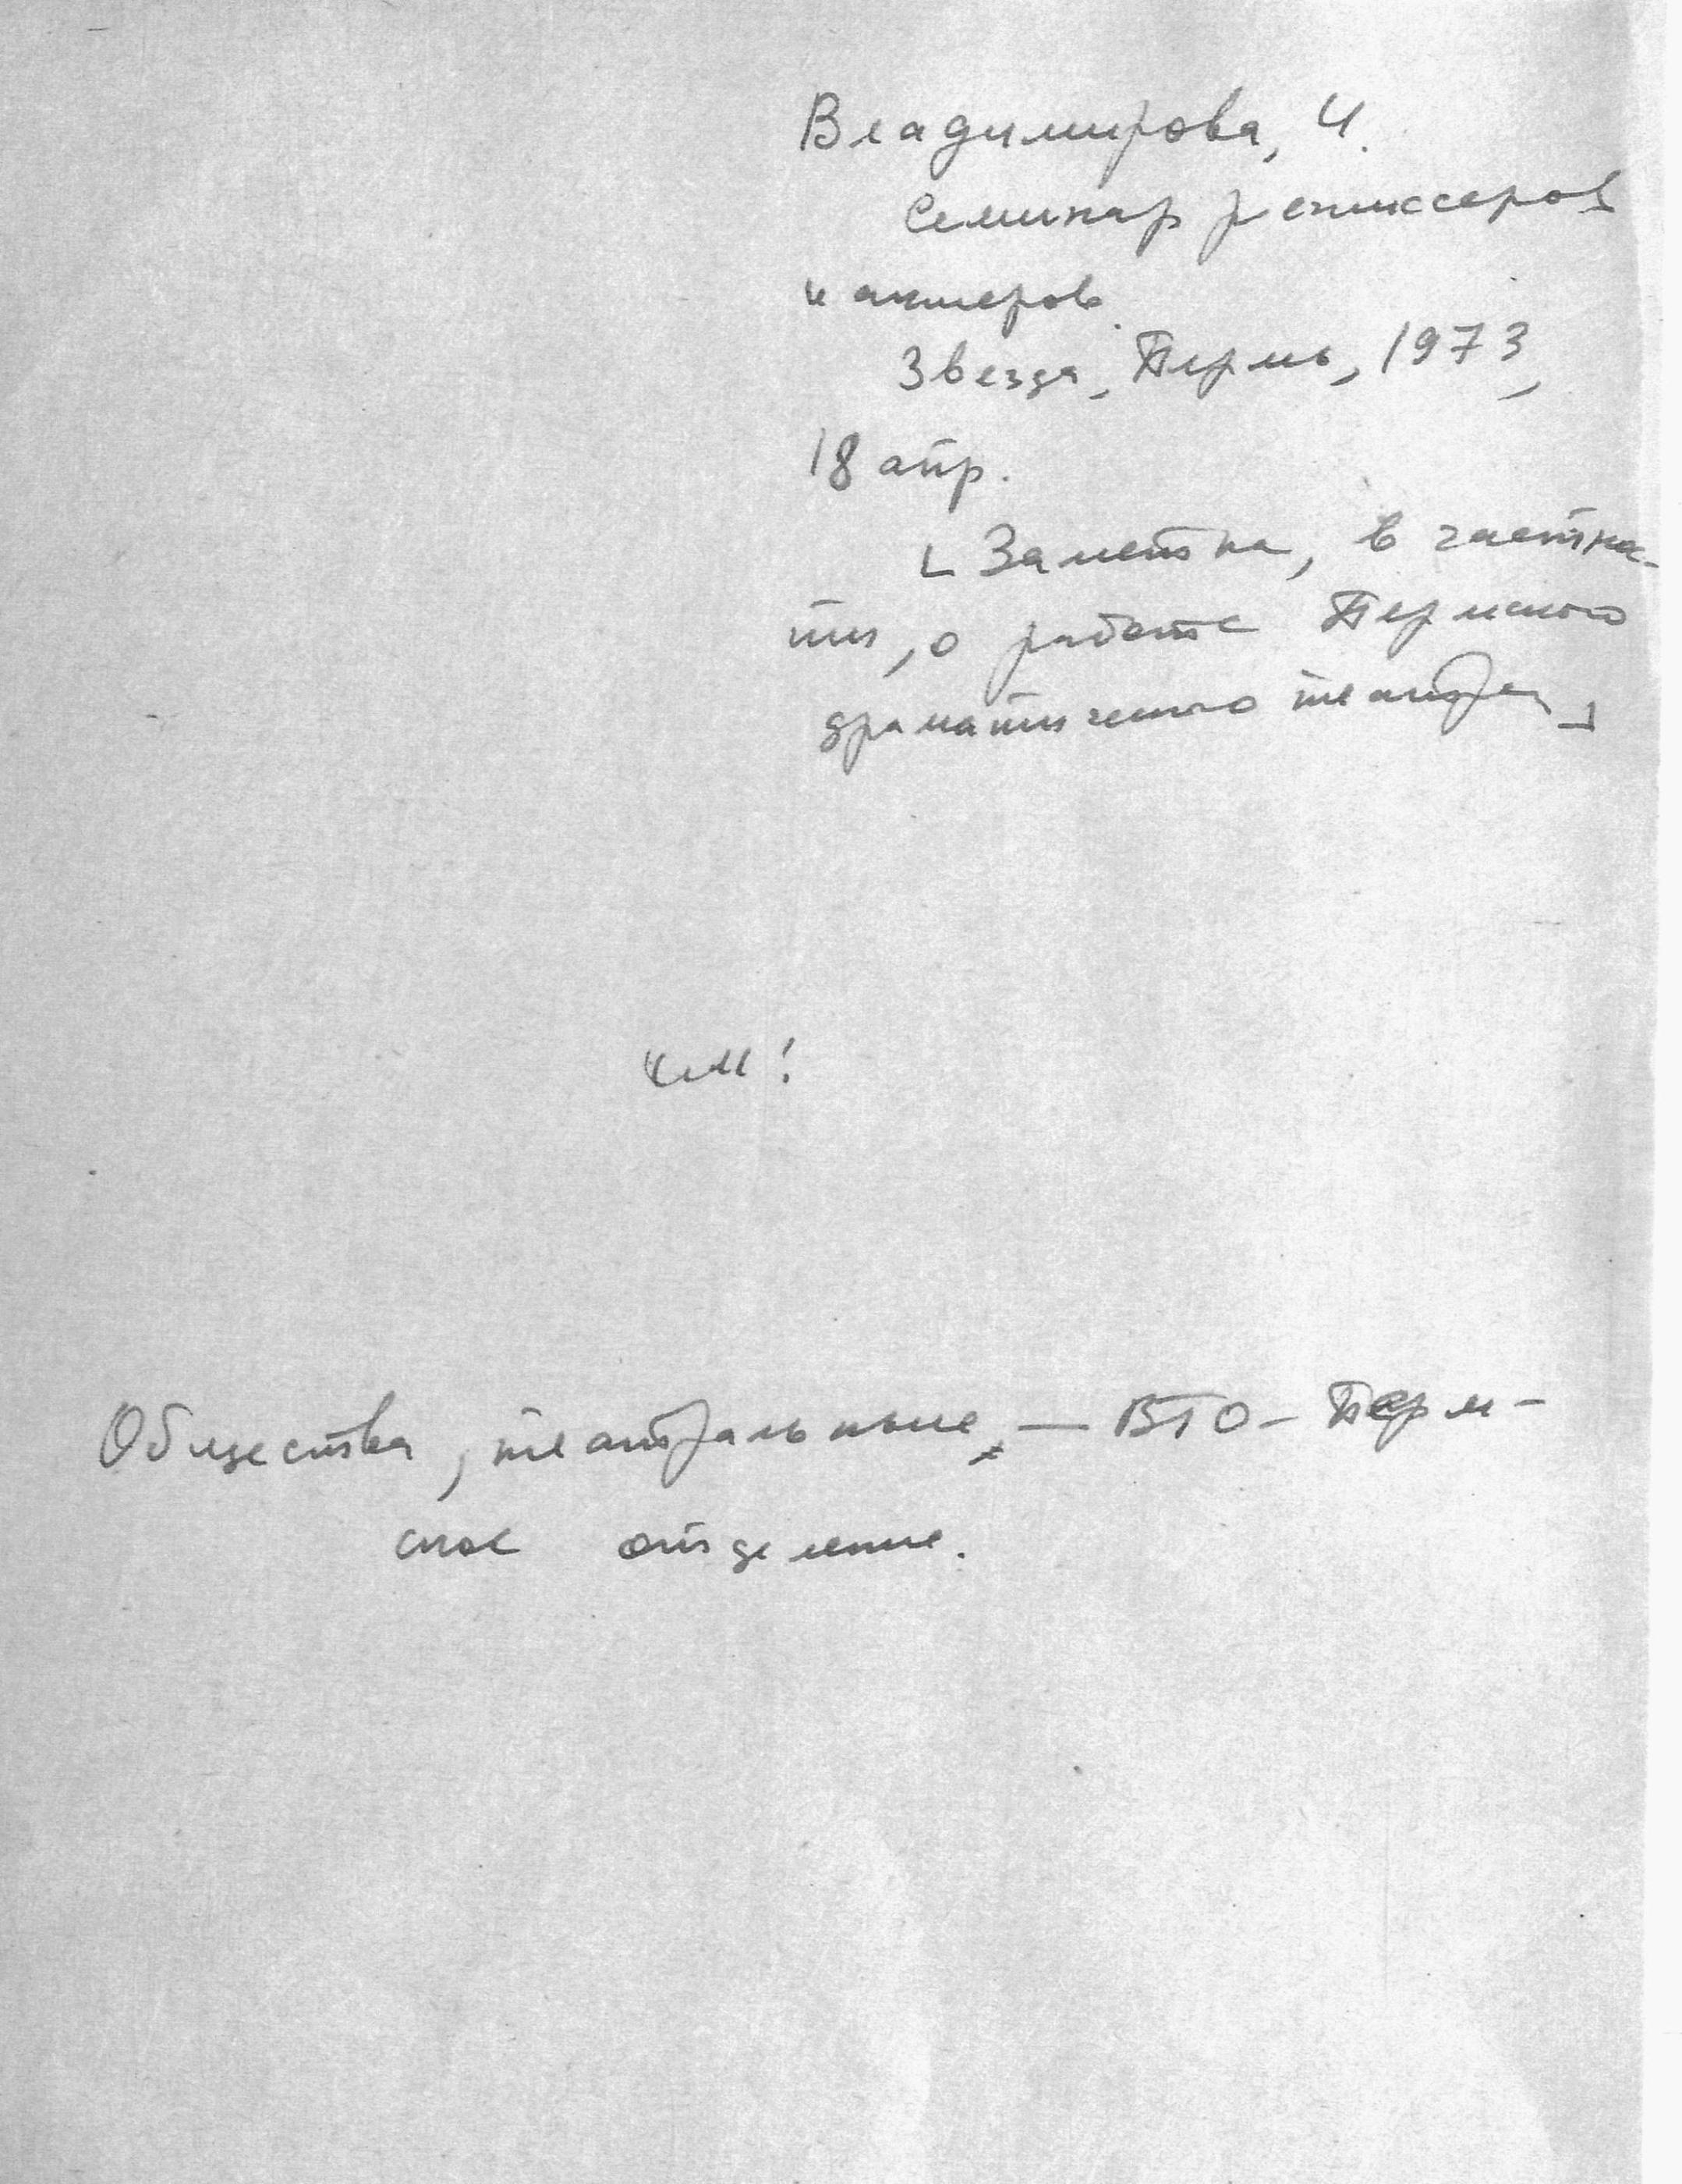 Владимирова, И.
Семинар режиссеров
и актеров.
Звезда, Пермь, 1973,
18 апр.
[Заметка, в частнос-
ти, о работе Пермского
драматического театра]
Общества, театральные, — ВТО — Перм-
ское отделение.